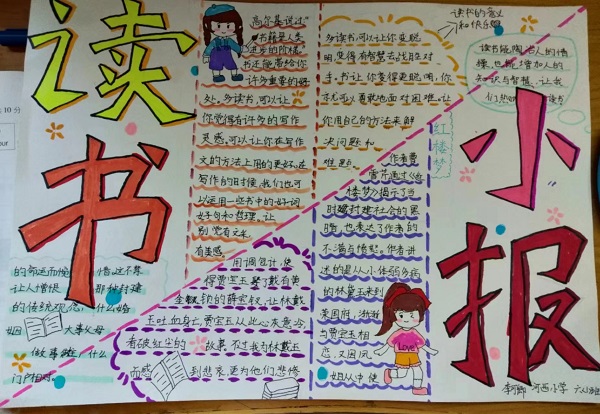 读书
小报
高尔基说过
书籍是人类
进步的阶梯
书还能带给你
许多重要的好
处。多读书，可以让
你觉得有许多的写作
灵感。可以让你在写作
文的方法上用的更好。在
写作的时候，我们也可
以运用一些书中的好词
好句和哲理。让
别觉有文采
有美感。
多读书，可以让你变聪
明，变得有智慧去战胜对
手。书让你变得更聪明，你
就可以勇敢地面对困难。让
你用自己的方法来解
决问题和
难题。
读书的意义
和快乐
读书能陶冶人的情
操，也能增加人的
知识与智慧，让我
们
红楼梦
作者曹
雪芹通过《红
楼梦》揭示了当
时封建社会的黑
暗，也表达了作者的
不满与愤怒。作者讲
述的是从小体弱多病
的林黛玉来到
贾国府，渐渐
与贾宝玉相
恋，又因凤
姐从中使
用调包计，使
得贾宝玉娶了戴有黄
金锁的薛宝钗，让林戴
玉吐血身亡，贾宝玉从此心灰意冷
看破红尘的故事，不过我为林戴玉
而感到悲哀，更为他们悲惨
的命运而惋惜这不禁
让人憎恨那种封建
的传统观念，什么婚
姻大事父母
做事难，什么
门户相对。
李珂卿 河西小学 六(1)班